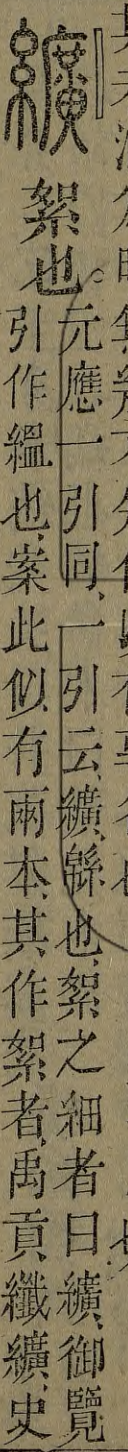 纊
絮也。
元應一引同、一引云、纊、緜也、絮之細者曰纊、御覽
引作縕也、案此似有兩本、其作絮者、禹貢纖纊、史